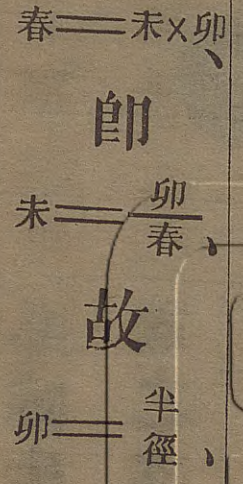 春＝未×卯、
即
未＝卯/春、
故
卯＝半徑、